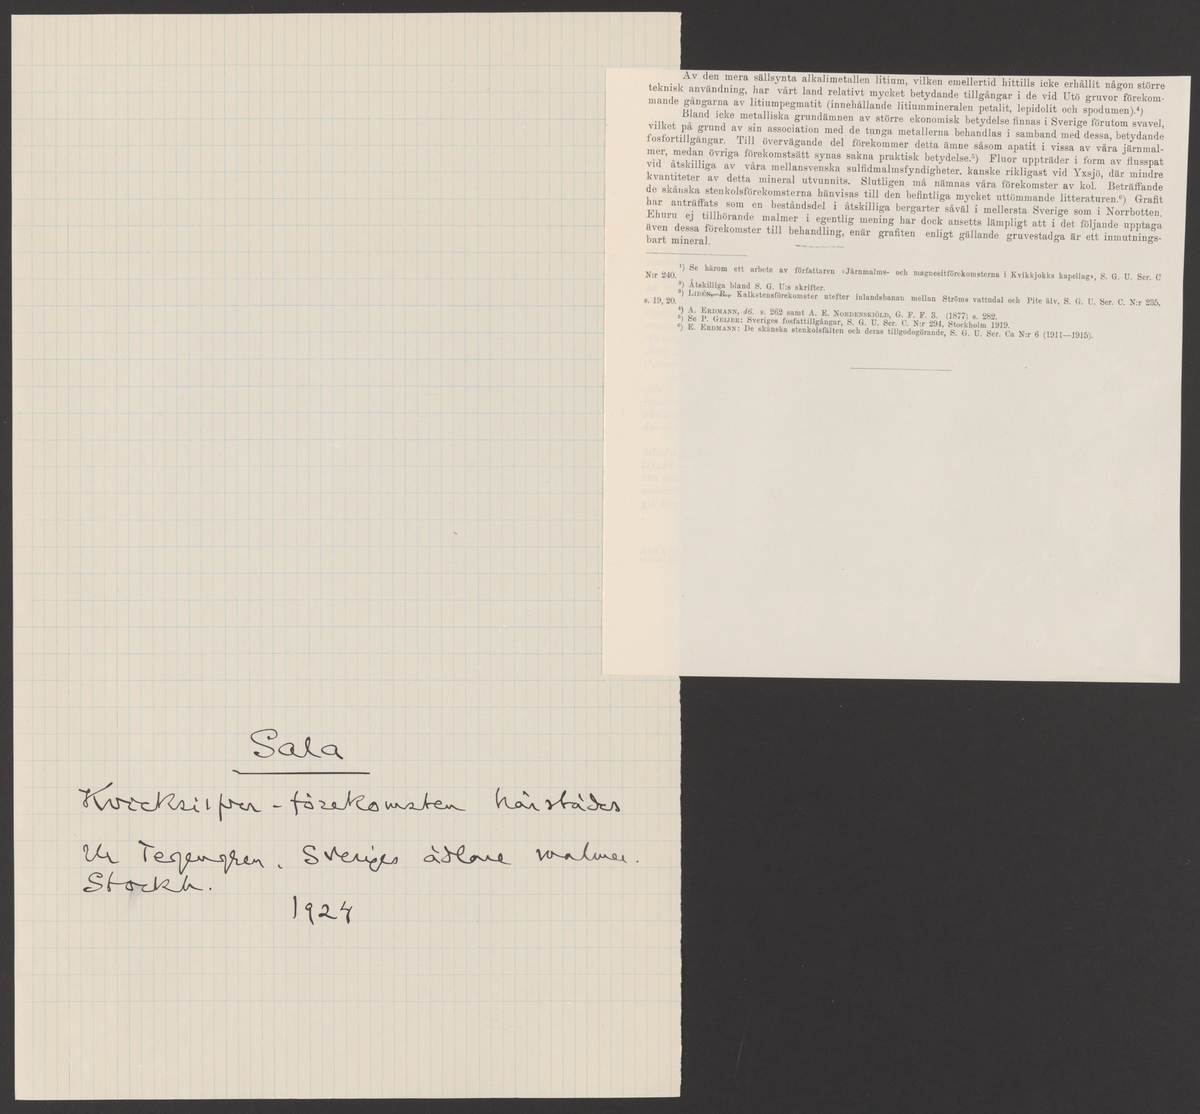 Av den mera sällsynta alkalimetallen litium, vilken emellertid hittills icke erhållit någon större
teknisk användning, har vårt land relativt mycket betydande tillgångar i de vid Utö gruvor förekom-
mande gångarna av litiumpegmatit (innehållande litiummineralen petalit, lepidolit och spodumen).⁴)
Bland icke metalliska grundämnen av större ekonomisk betydelse finnas i Sverige förutom svavel,
vilket på grund av sin association med de tunga metallerna behandlas i samband med dessa, betydande
fosfortillgångar. Till övervägande del förekommer detta ämne såsom apatit i vissa av våra järnmal-
mer, medan övriga förekomstsätt synas sakna praktisk betydelse.⁵) Fluor uppträder i form av flusspat
vid åtskilliga av våra mellansvenska sulfidmalmsfyndigheter, kanske rikligast vid Yxsjö, där mindre
kvantiteter av detta mineral utvunnits. Slutligen må nämnas våra förekomster av kol. Beträffande
de skånska stenkolsförekomsterna hänvisas till den befintliga mycket uttömmande litteraturen.⁶) Grafit
har anträffats som en beståndsdel i åtskilliga bergarter såväl i mellersta Sverige som i Norrbotten.
Ehuru ej tillhörande malmer i egentlig mening har dock ansetts lämpligt att i det följande upptaga
även dessa förekomster till behandling, enär grafiten enligt gällande gruvestadga är ett inmutnings-
bart mineral.
¹) Se härom ett arbete av författaren »Järnmalms- och magnesitförekomsterna i Kvikkjokks kapellag», S. G. U. Ser. C
N:r 240.
²) Åtskilliga bland S. G. U:s skrifter.
³) LIDÉN, R., Kalkstensförekomster utefter inlandsbanan mellan Ströms vattudal och Pite älv, S. G. U. Ser. C. N:r 235,
s. 19, 20.
⁴) A. ERDMANN, 46. s. 262 samt A. E. NORDENSKIÖLD, G. F. F. 3. (1877) s. 282.
⁵) Se P. GEIJER: Sveriges fosfattillgångar, S. G. U. Ser. C. N:r 294, Stockholm 1919.
⁶) E. ERDMANN: De skånska stenkolsfälten och deras tillgodogörande, S. G. U. Ser. Ca N:r 6 (1911—1915).
Sala
Kvicksilfver-förekomsten härstädes
Ur Tegengren, Sveriges ädlare malmer.
Stockh.
1924